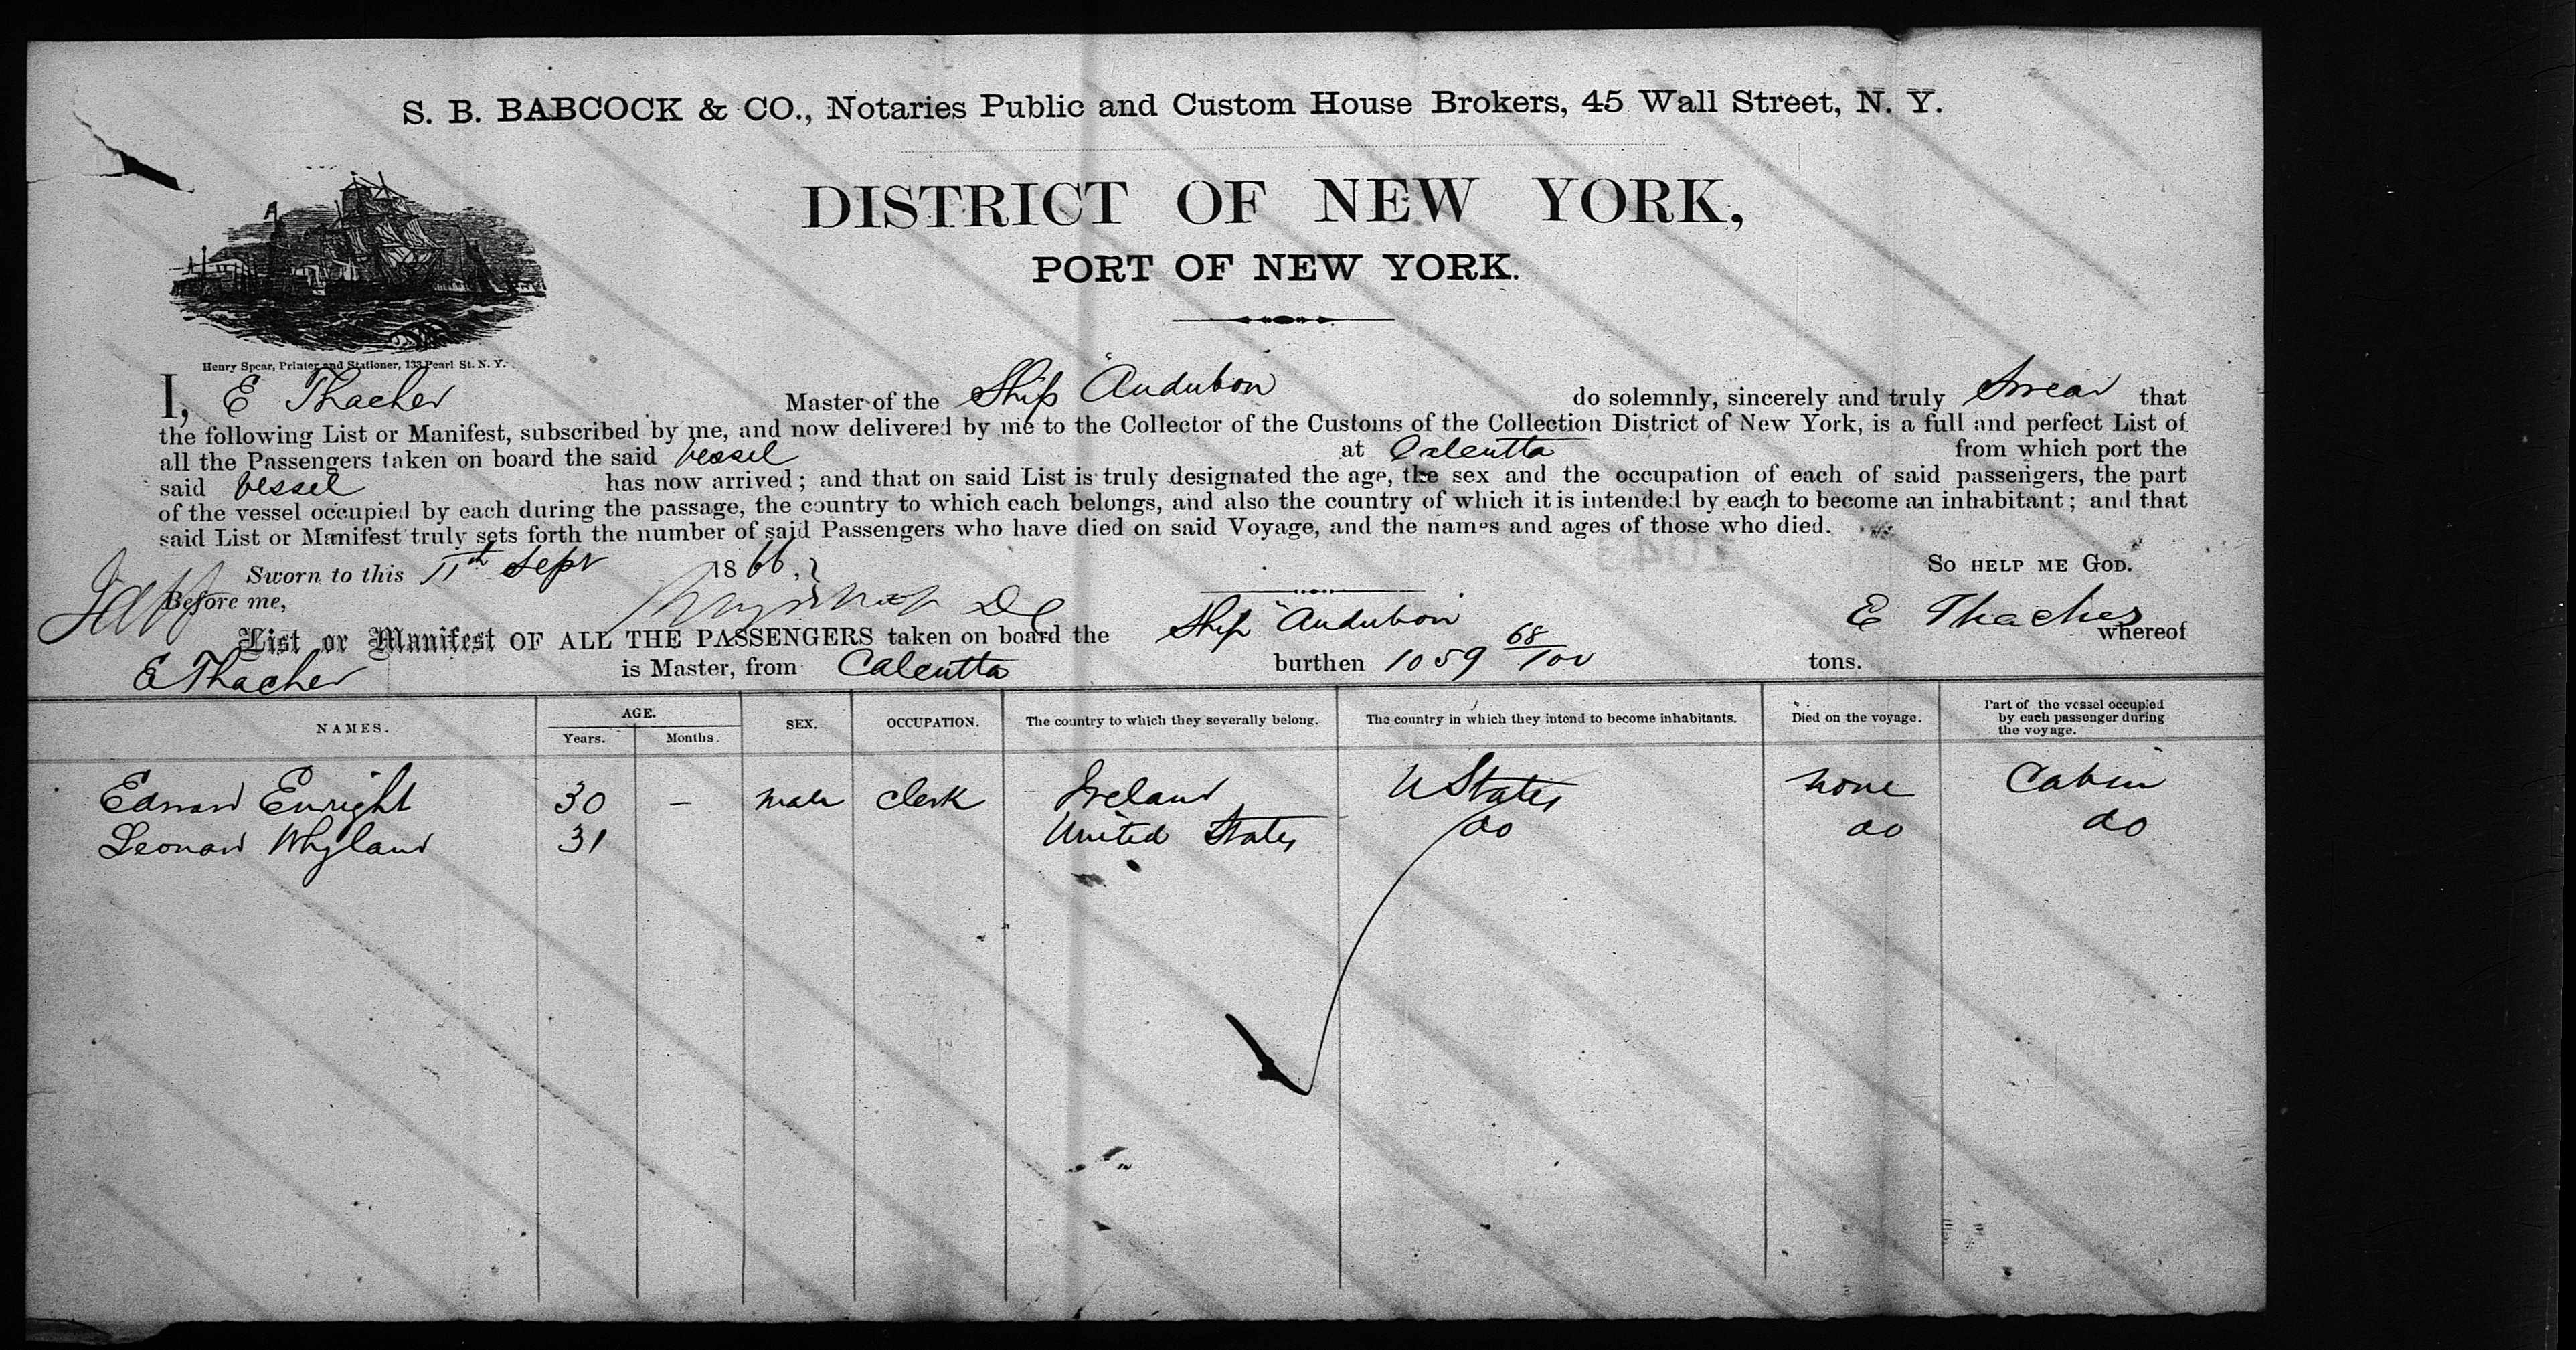 S. B. BABCOCK & CO., Notaries Public and Custom House Brokers, 45 Wall Street, N. Y.
DISTRICT OF NEW YORK,
PORT OF NEW YORK.
Henry Spear, Printer and Stationer, 133 Pearl St. N. Y.
I, E Thacher Master of the Ship Audubon do solemnly, sincerely and truly Swear that
the following List or Manifest, subscribed by me, and now delivered by me to the Collector of the Customs of the Collection District of New York, is a full and perfect List of
all the Passengers taken on board the said vessel at Calcutta from which port the
said vessel has now arrived; and that on said List is truly designated the age, the sex and the occupation of each of said passengers, the part
of the vessel occupied by each during the passage, the country to which each belongs, and also the country of which it is intended by each to become an inhabitant; and that
said List or Manifest truly sets forth the number of said Passengers who have died on said Voyage, and the names and ages of those who died.
Sworn to this 11th Sept 1866, SO HELP ME GOD.
Before me, E Thacher
List or Manifest OF ALL THE PASSENGERS taken on board the Ship "Audubon" whereof
E Thacher is Master, from Calcutta burthen 1059 68/100 tons.
NAMES. AGE. Years. Months. SEX. OCCUPATION. The country to which they severally belong. The country in which they intend to become inhabitants. Died on the voyage. Part of the vessel occupied by each passenger during the voyage.
Edward Enright 30 – male clerk Ireland U States none Cabin
Leonard Whyland 31 United States do do do